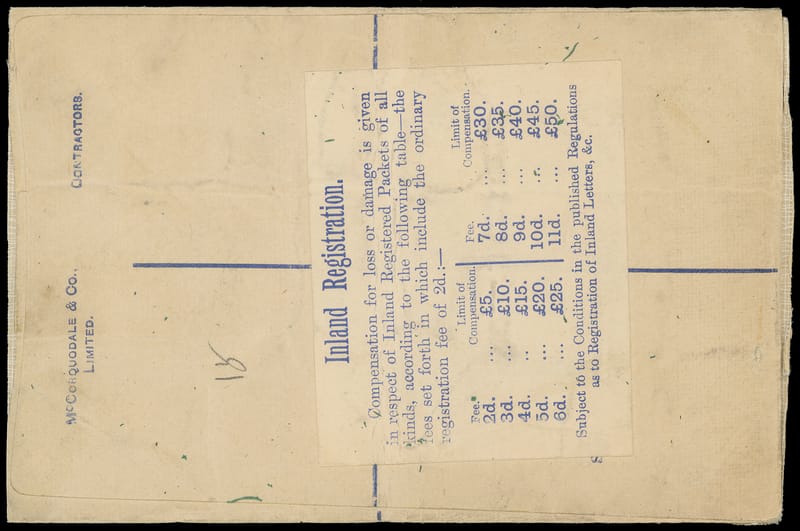 McCORQUODALE & Co.,
LIMITED.
CONTRACTORS.
18
Inland Registration.
Compensation for loss or damage is given
in respect of Inland Registered Packets of all
kinds, according to the following table—the
fees set forth in which include the ordinary
registration fee of 2d.:—
Fee. Limit of Compensation. Fee. Limit of Compensation.
2d. ... £5. 7d. ... £30.
3d. ... £10. 8d. ... £35.
4d. ... £15. 9d. ... £40.
5d. ... £20. 10d. ... £45.
6d. ... £25. 11d. ... £50.
Subject to the Conditions in the published Regulations
as to Registration of Inland Letters, &c.